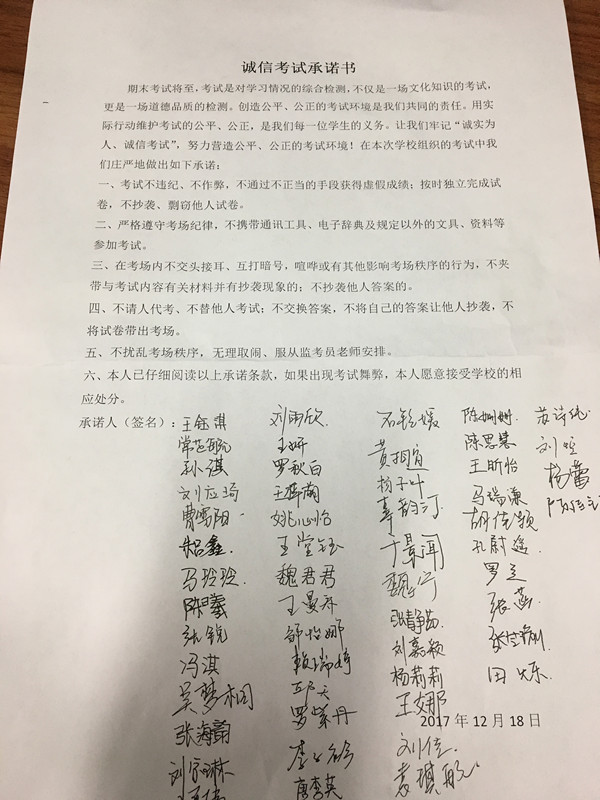 诚信考试承诺书
期末考试将至，考试是对学习情况的综合检测，不仅是一场文化知识的考试，
更是一场道德品质的检测。创造公平、公正的考试环境是我们共同的责任。用实
际行动维护考试的公平、公正，是我们每一位学生的义务。让我们牢记“诚实为
人、诚信考试”，努力营造公平、公正的考试环境！在本次学校组织的考试中我
们庄严地做出如下承诺：
一、考试不违纪、不作弊，不通过不正当的手段获得虚假成绩；按时独立完成试
卷，不抄袭、剽窃他人试卷。
二、严格遵守考场纪律，不携带通讯工具、电子辞典及规定以外的文具、资料等
参加考试。
三、在考场内不交头接耳、互打暗号，喧哗或有其他影响考场秩序的行为，不夹
带与考试内容有关材料并有抄袭现象的；不抄袭他人答案的。
四、不请人代考、不替他人考试；不交换答案，不将自己的答案让他人抄袭，不
将试卷带出考场。
五、不扰乱考场秩序，无理取闹、服从监考员老师安排。
六、本人已仔细阅读以上承诺条款，如果出现考试舞弊，本人愿意接受学校的相
应处分。
承诺人（签名）：王钰琪 刘雨欣 陈姗姗
孙淇 罗秋白 陈思慧 刘
王妍 王昕怡 杨蕾
刘应琦 杨子叶 马瑞谦
曹雪阳 姚心怡 胡佳颖
朱吕鑫 王堂钰 于景闻 孔蔚遥
马玲玲 魏君君 魏宁 罗
陈曦 王曼乔 张静茹 张蕊
张锐 邹怡娜 刘嘉颖
冯淇 杨莉莉 田
吴梦桐 王娜
2017年12月18日
张海韵 罗紫丹
刘家琳 刘佳
唐李英 袁琪